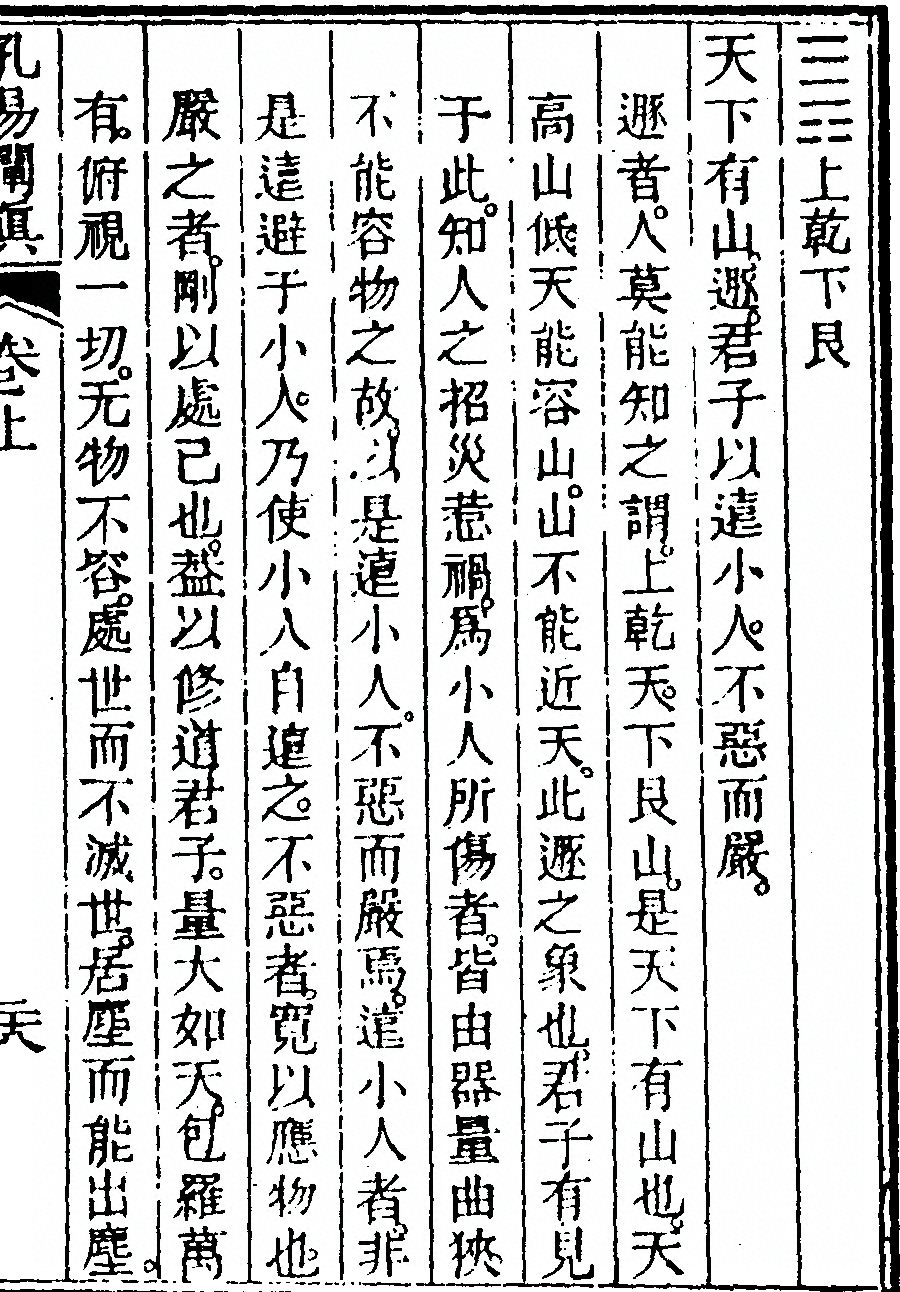 ☰☶上乾下艮
天下有山。遯。君子以遠小人。不惡而嚴。
遯者。人莫能知之謂。上乾天。下艮山。是天下有山也。天
高山低天能容山。山不能近天。此遯之象也。君子有見
于此。知人之招災惹禍。爲小人所傷者。皆由器量曲狹。
不能容物之故。以是遠小人。不惡而嚴焉。遠小人者。非
是遠避于小人。乃使小人自遠之。不惡者。寬以應物也。
嚴之者。剛以處己也。蓋以修道君子。量大如天。包羅萬
有。俯視一切。无物不容。處世而不滅世。居塵而能出塵。
孔易闡眞
卷上